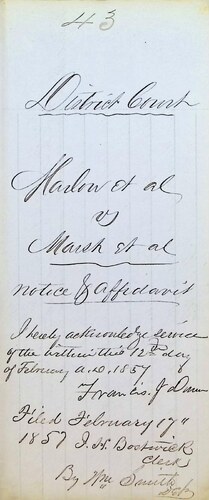 43
District Court
Harlow et al
vs
Marsh et al
notice & Affidavit
I hereby acknowledge service
of the within this 12th day
of February A.D. 1857
Francis J Dunn
Filed February 17"
1857 J. H. Bostwick
Clerk
By Wm Smith
Dept